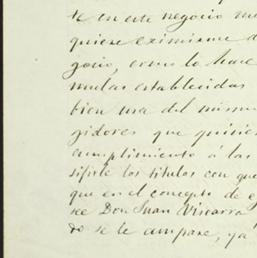 te en este negocio
quiere eximirme
gocio, como lo hace
mulas establecidas
bien usa del mismo
gidores que quisie
cumplimiento á las
sifiste los titulos con que
que en el concepto de
see Don Juan Viscarra
do se le ampare, ya